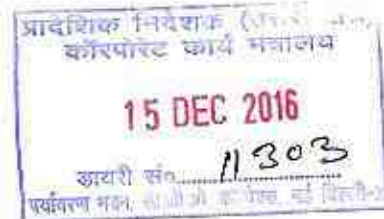 प्रादेशिक निदेशक
कॉरपोरेट कार्य मंत्रालय
15 DEC 2016
डायरी सं० 11303
पर्यावरण भवन, नई दिल्ली-